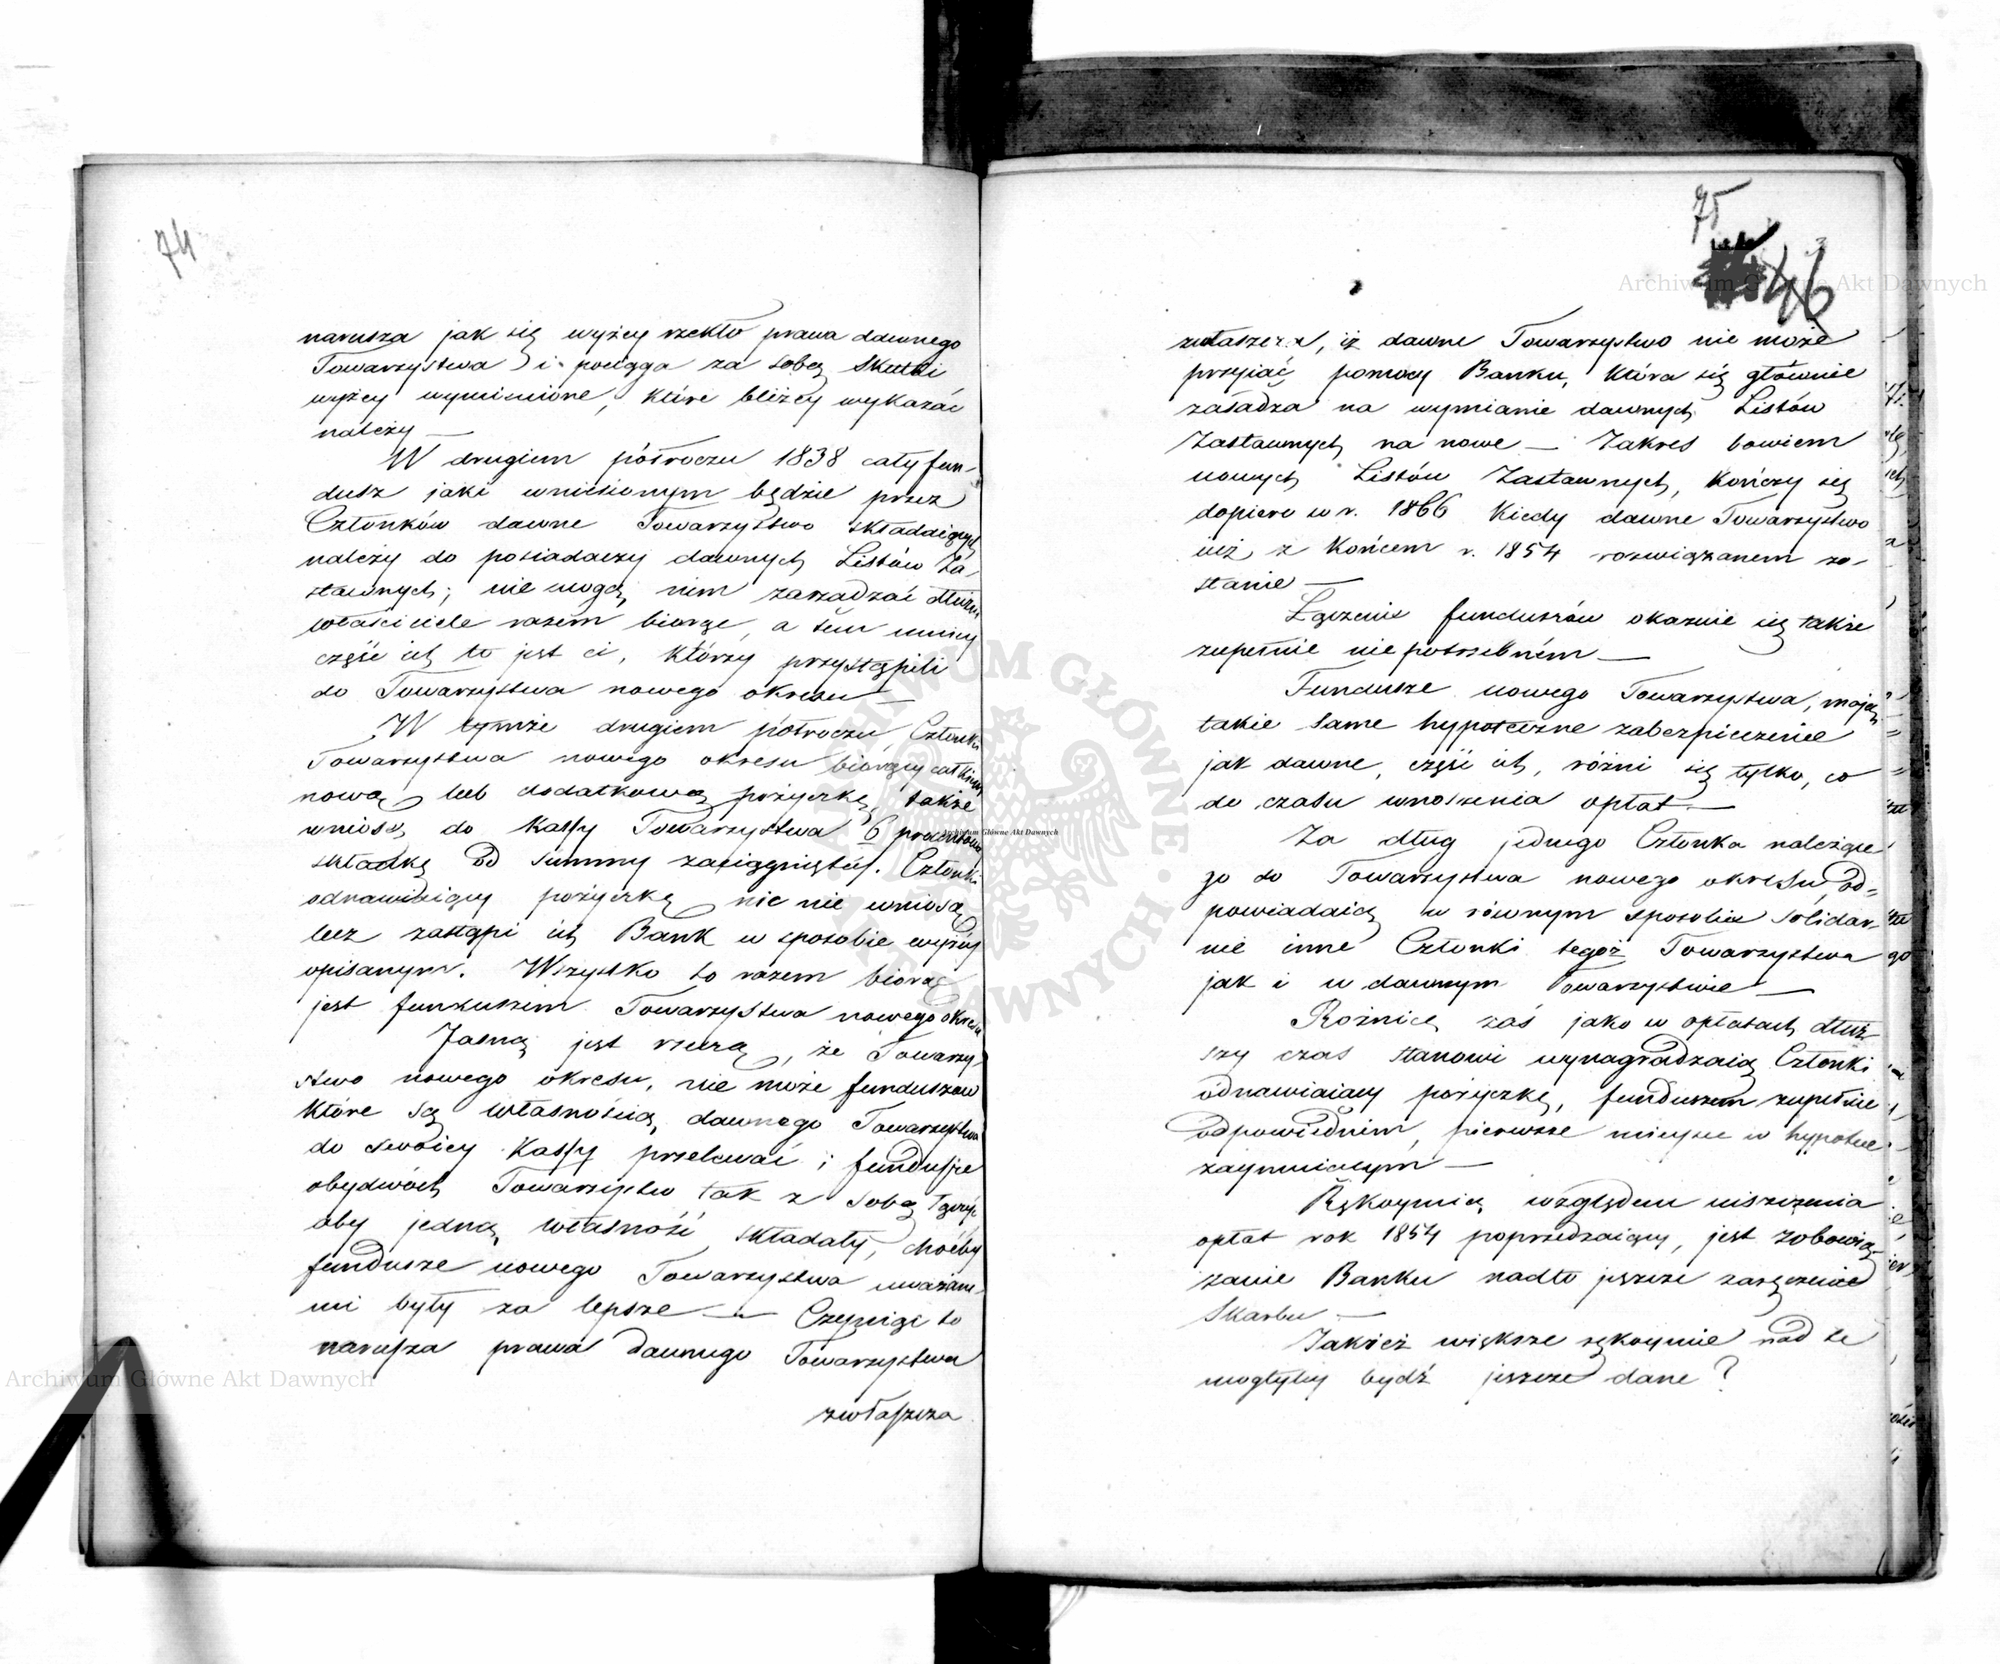 74
narusza jak się wyżey rzekło prawa dawnego
Towarzystwa i pociąga za sobą skutki
wyżey wymienione, które bliżey wykazać
należy —
W drugiem półroczu 1838 cały fun-
dusz jaki wniesionym będzie przez
Członków dawne Towarzystwo składaiących
należy do posiadaczy dawnych Listów Za-
stawnych; nie mogą nim zarządzać dłużni
właściciele razem biorąc, a tem mniey
część ich to jest ci, którzy przystąpili
do Towarzystwa nowego okresu —
W tymże drugiem półroczu Członki
Towarzystwa nowego okresu biorący całkiem
nową lub dodatkową pożyczkę, także
wniosą do Kassy Towarzystwa 6 procentową
składkę od summy zaciągniętéj. Członki
odnawiaiący pożyczkę nic nie wniosą
lecz zastąpi ich Bank w sposobie wyżéj
opisanym. Wszystko to razem biorąc
jest funduszem Towarzystwa nowego okresu
Jasną jest rzeczą, że Towarzy-
stwo nowego okresu, nie może funduszów
które są własnością dawnego Towarzystwa
do swoiey Kassy przelewać i fundusze
obydwóch Towarzystw tak z sobą łączyć
aby jedną własność składały, choćby
fundusze nowego Towarzystwa uważane-
mi były za lepsze — Czyniąc to
narusza prawa dawnego Towarzystwa
zwłaszcza
75
3
46
zwłaszcza, iż dawne Towarzystwo nie może
przyiąć pomocy Banku, która się głównie
zasadza na wymianie dawnych Listów
Zastawnych na nowe — Zakres bowiem
nowych Listów Zastawnych, kończy się
dopiero w r. 1866 kiedy dawne Towarzystwo
już z końcem r. 1854 rozwiązanem zo-
stanie —
Łączenie funduszów okazuie się także
zupełnie niepotrzebném —
Fundusze nowego Towarzystwa, mają
takie same hypoteczne zabezpieczenie
jak dawne, część ich, różni się tylko, co
do czasu wnoszenia opłat —
Za dług jednego Członka należące-
go do Towarzystwa nowego okresu, od-
powiadaią w równym sposobie solidar-
nie inne Członki tegoż Towarzystwa
jak i w dawnym Towarzystwie —
Roźnicę zaś jako w opłatach dłuż-
szy czas stanowi wynagradzaią Członki
odnawiaiący pożyczkę, funduszem zupełnie
odpowiednim, pierwsze mieysce w hypotece
zaymuiącym —
Rękoymią względem uiszczenia
opłat rok 1854 poprzedzaiący, jest zobowią-
zanie Banku nadto jeszcze zaręczenie
Skarbu —
Jakież większe rękoymie nad te
mogłyby bydź jeszcze dane?
Archiwum Główne Akt Dawnych
Archiwum Główne Akt Dawnych
Archiwum Główne Akt Dawnych
ARCHIWUM GŁÓWNE AKT DAWNYCH